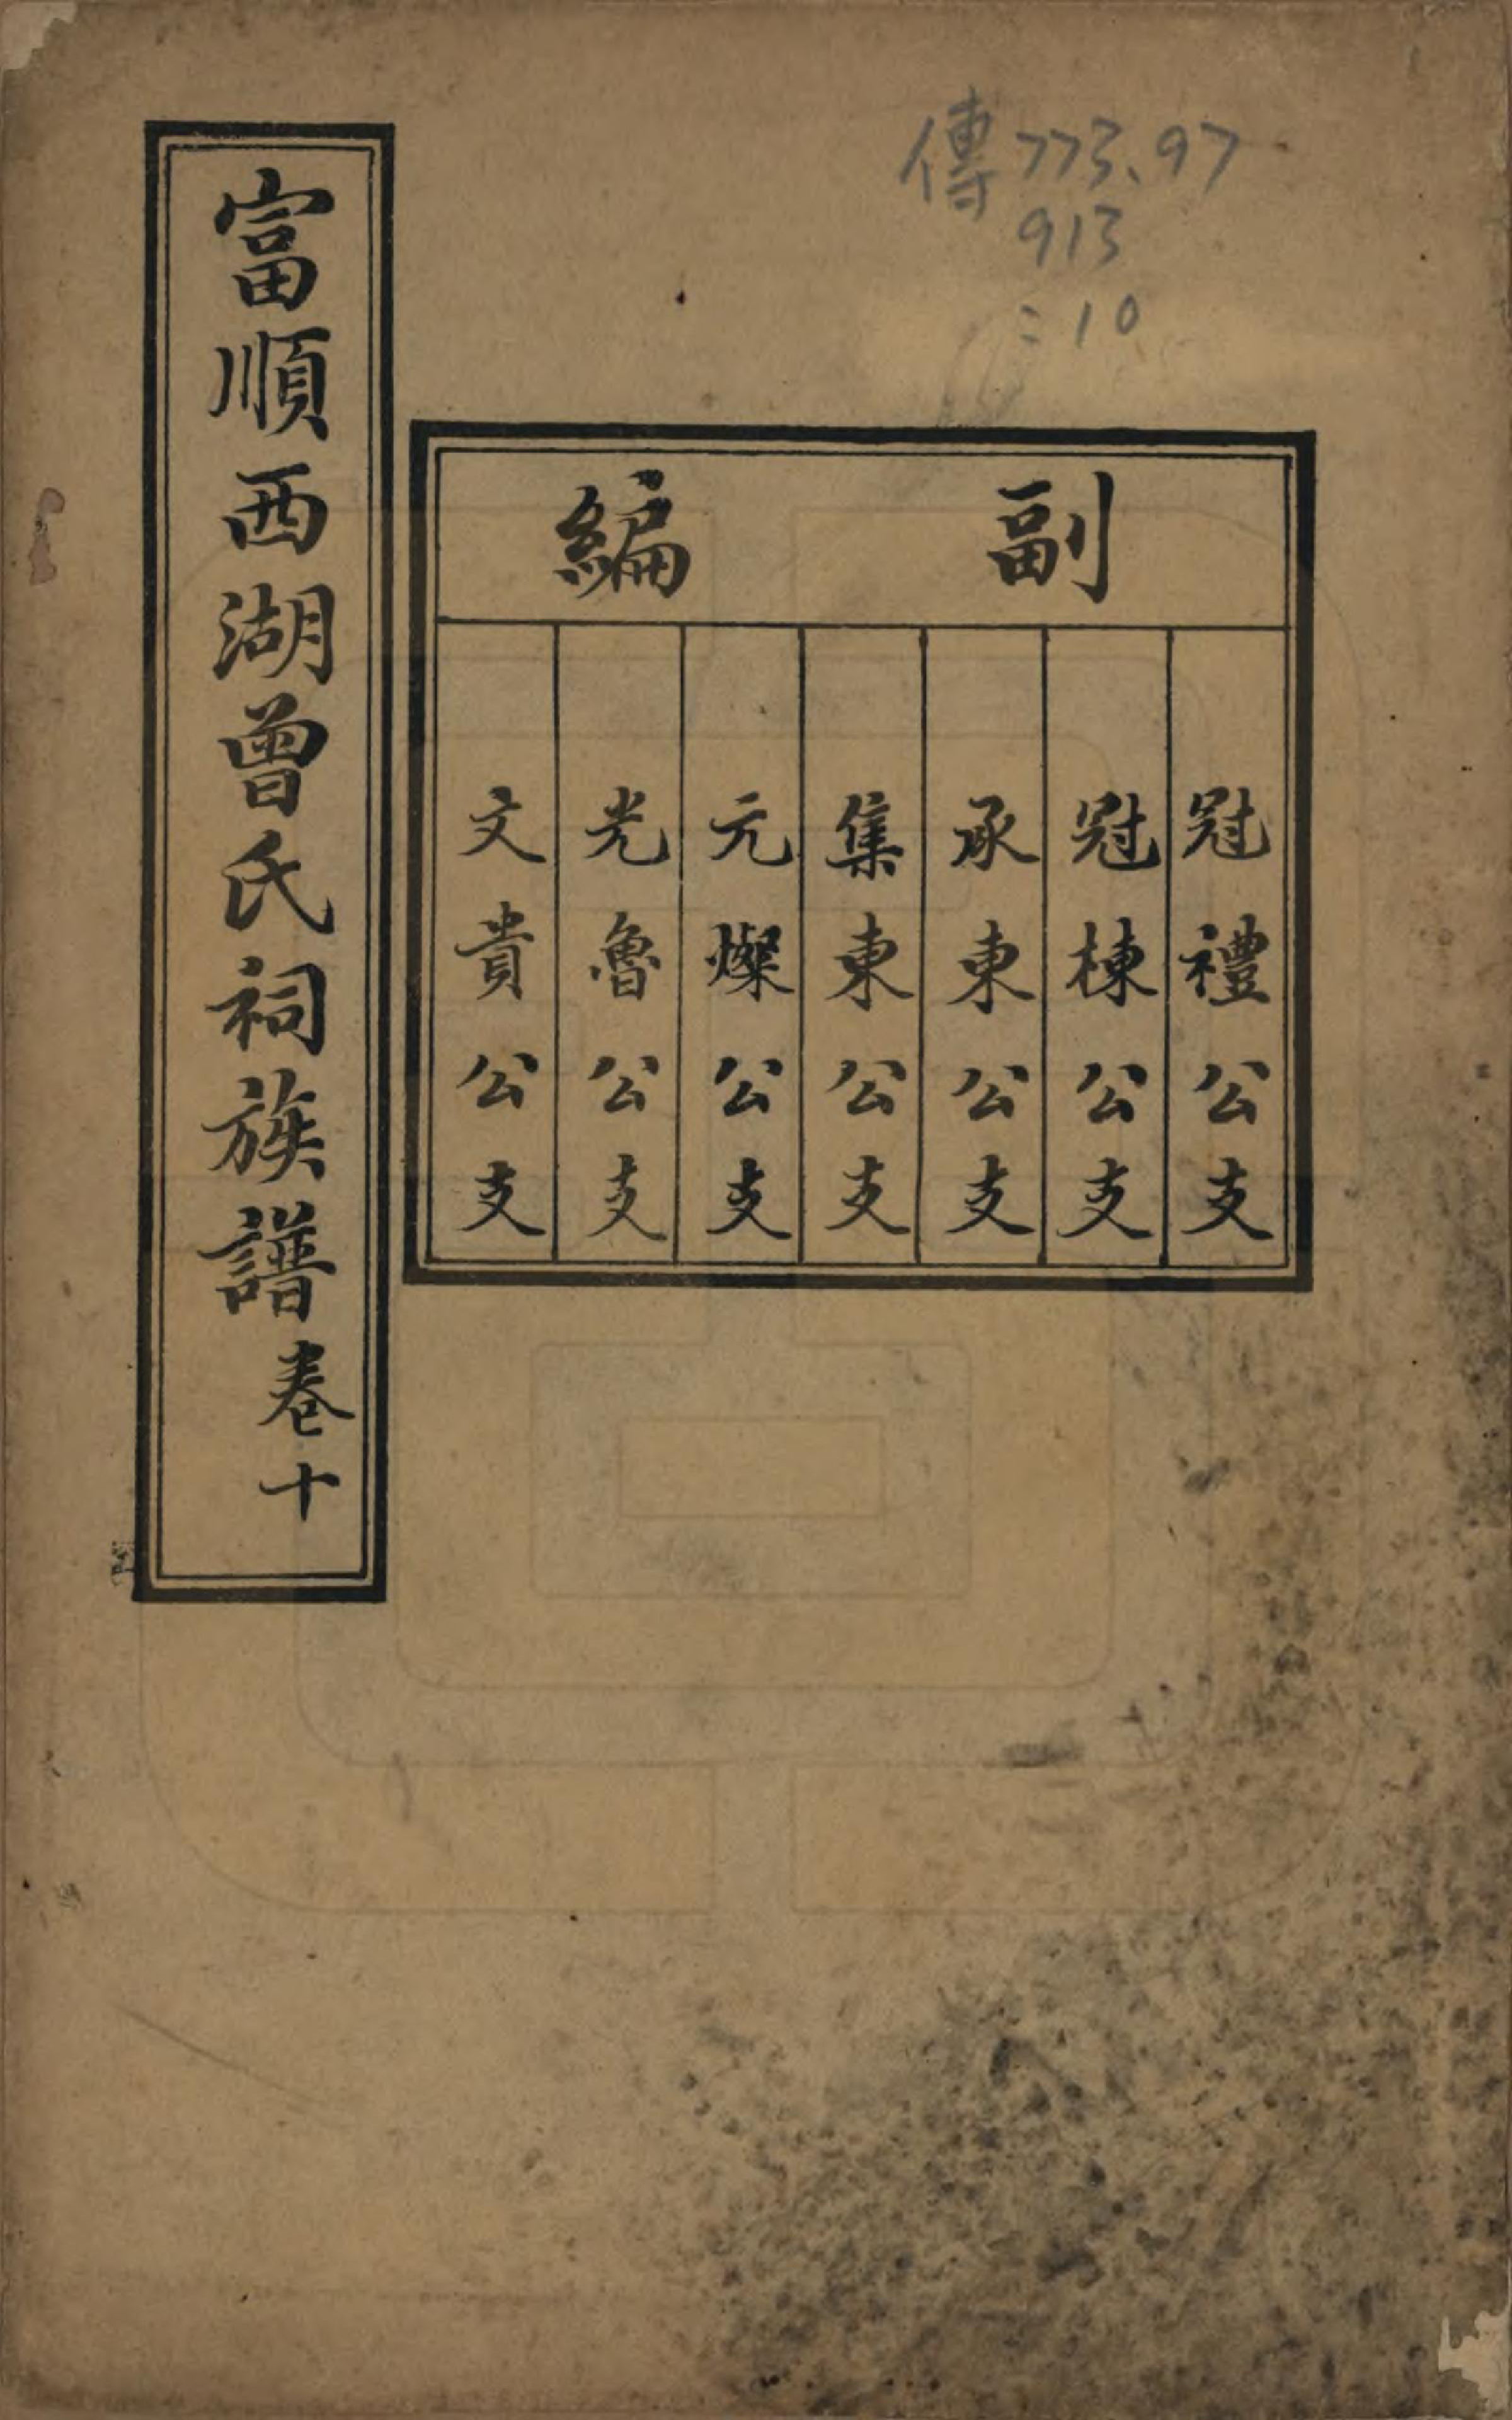 傳773.97
913
:10
副編
冠禮公支
冠棟公支
承東公支
集東公支
元燦公支
光魯公支
文貴公支
富順西湖曾氏祠族譜卷十